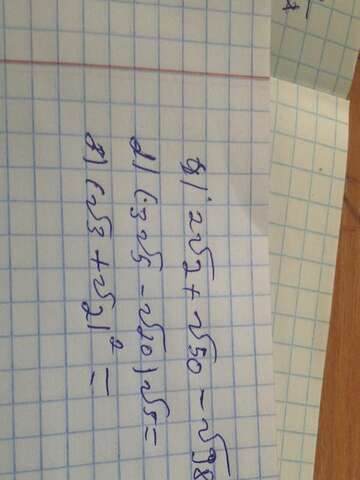 б) 2√2 + √50 - √98
d) (3√5 - √20)√5 =
в) (√3 + √2)² =